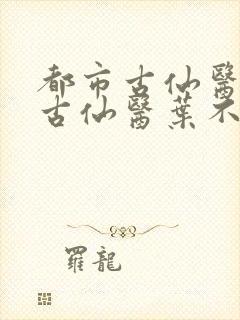 都市古仙醫
古仙醫葉不
羅龍